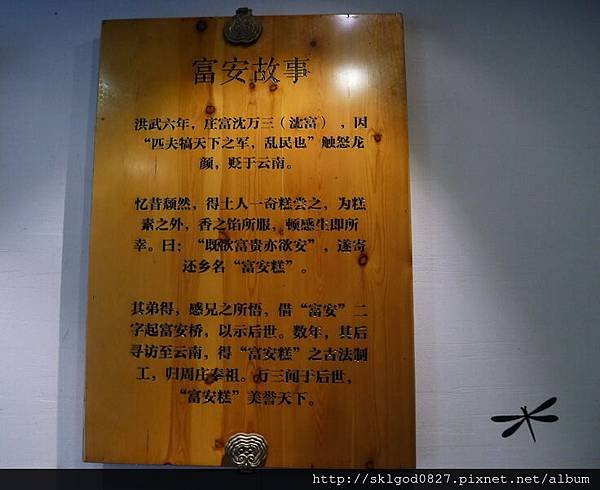 富安故事
洪武六年，庄富沈万三（沈富），因
“匹夫犒天下之军，乱民也”触怒龙
颜，贬于云南。
忆昔颓然，得土人一奇糕尝之，为糕
素之外，香之馅所服，顿感生即所
幸。曰：“既欲富贵亦欲安”，遂寄
还乡名“富安糕”。
其弟得，感兄之所悟，借“富安”二
字起富安桥，以示后世。数年，其后
寻访至云南，得“富安糕”之古法制
工，归周庄奉祖。万三闻于后世，
“富安糕”美誉天下。
http://sklgod0827.pixnet.net/album